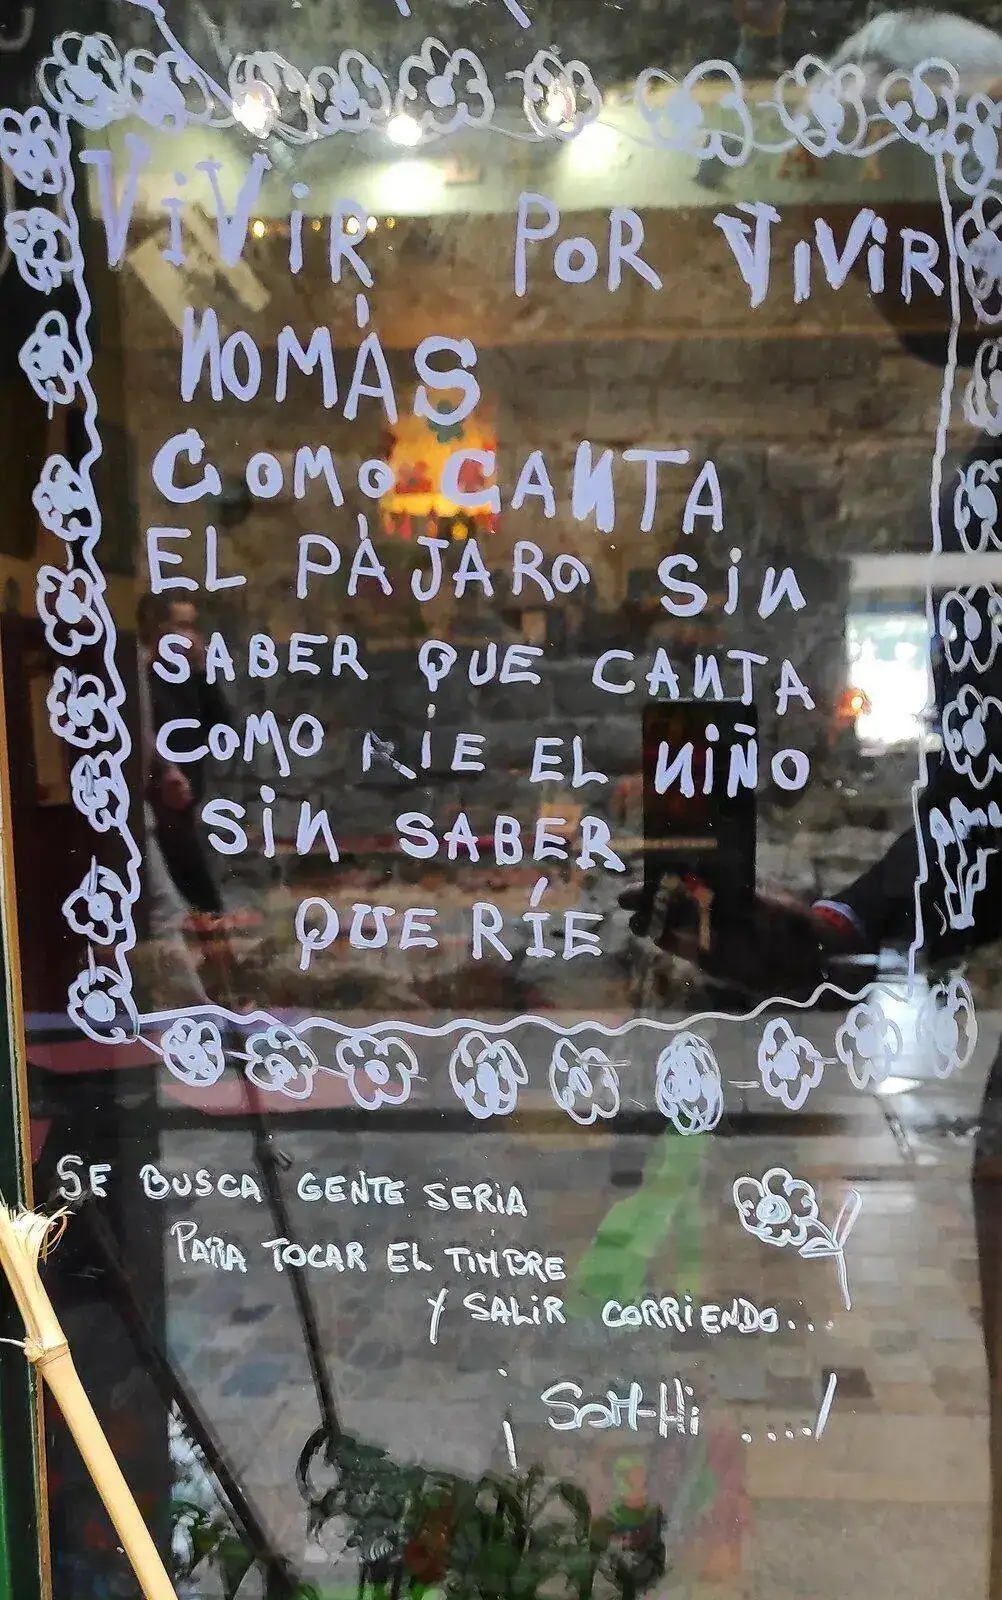 ViViR POR ViViR
NOMÁS
COMO CANTA
EL PÁJARO SiN
SABER QUE CANTA
COMO RÍE EL NiÑO
SiN SABER
QUE RÍE
SE BUSCA GENTE SERiA
PARA TOCAR EL TiMBRE
Y SALiR CORRiENDO...
¡SOM-Hi ....!